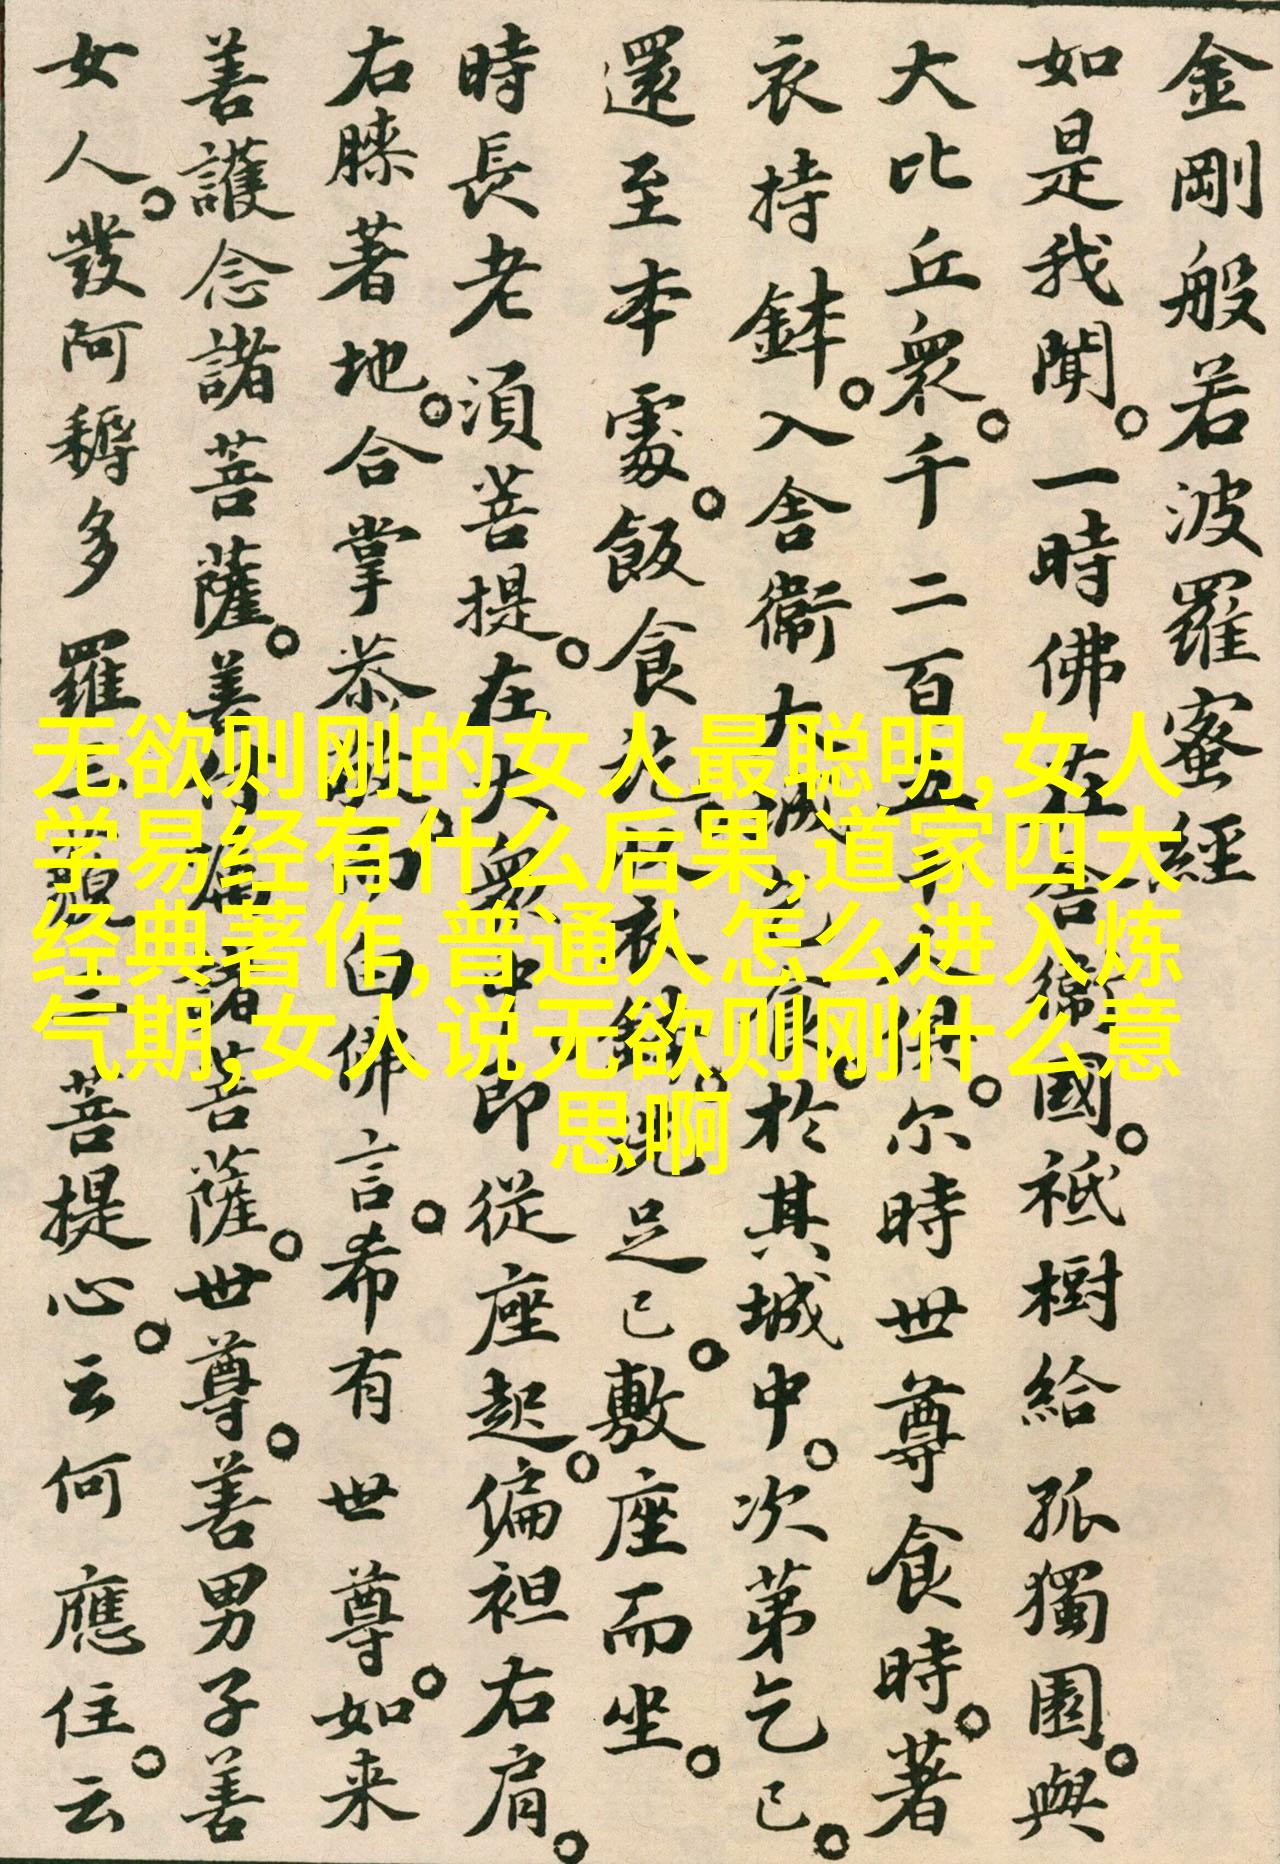 金剛般若波羅蜜經
如是我聞。一時佛在舍衛國。祇樹給孤獨園。與
大比丘衆千二百五十人俱。尔時世尊食時。著
衣持鉢。入舍衛大城乞食。於其城中。次第乞已。
還至本處。飯食訖。收衣鉢。洗足已。敷座而坐。
時長老須菩提。在大衆中。即從座起。偏袒右肩。
右膝著地。合掌恭敬。而白佛言。希有世尊。如来
善護念諸菩薩。善付囑諸菩薩。世尊。善男子善
女人。發阿耨多羅三藐三菩提心。云何應住。云
无欲则刚的女人最聪明,女人
学易经有什么后果,道家四大
经典著作,普通人怎么进入炼
气期,女人说无欲则刚什么意
思啊